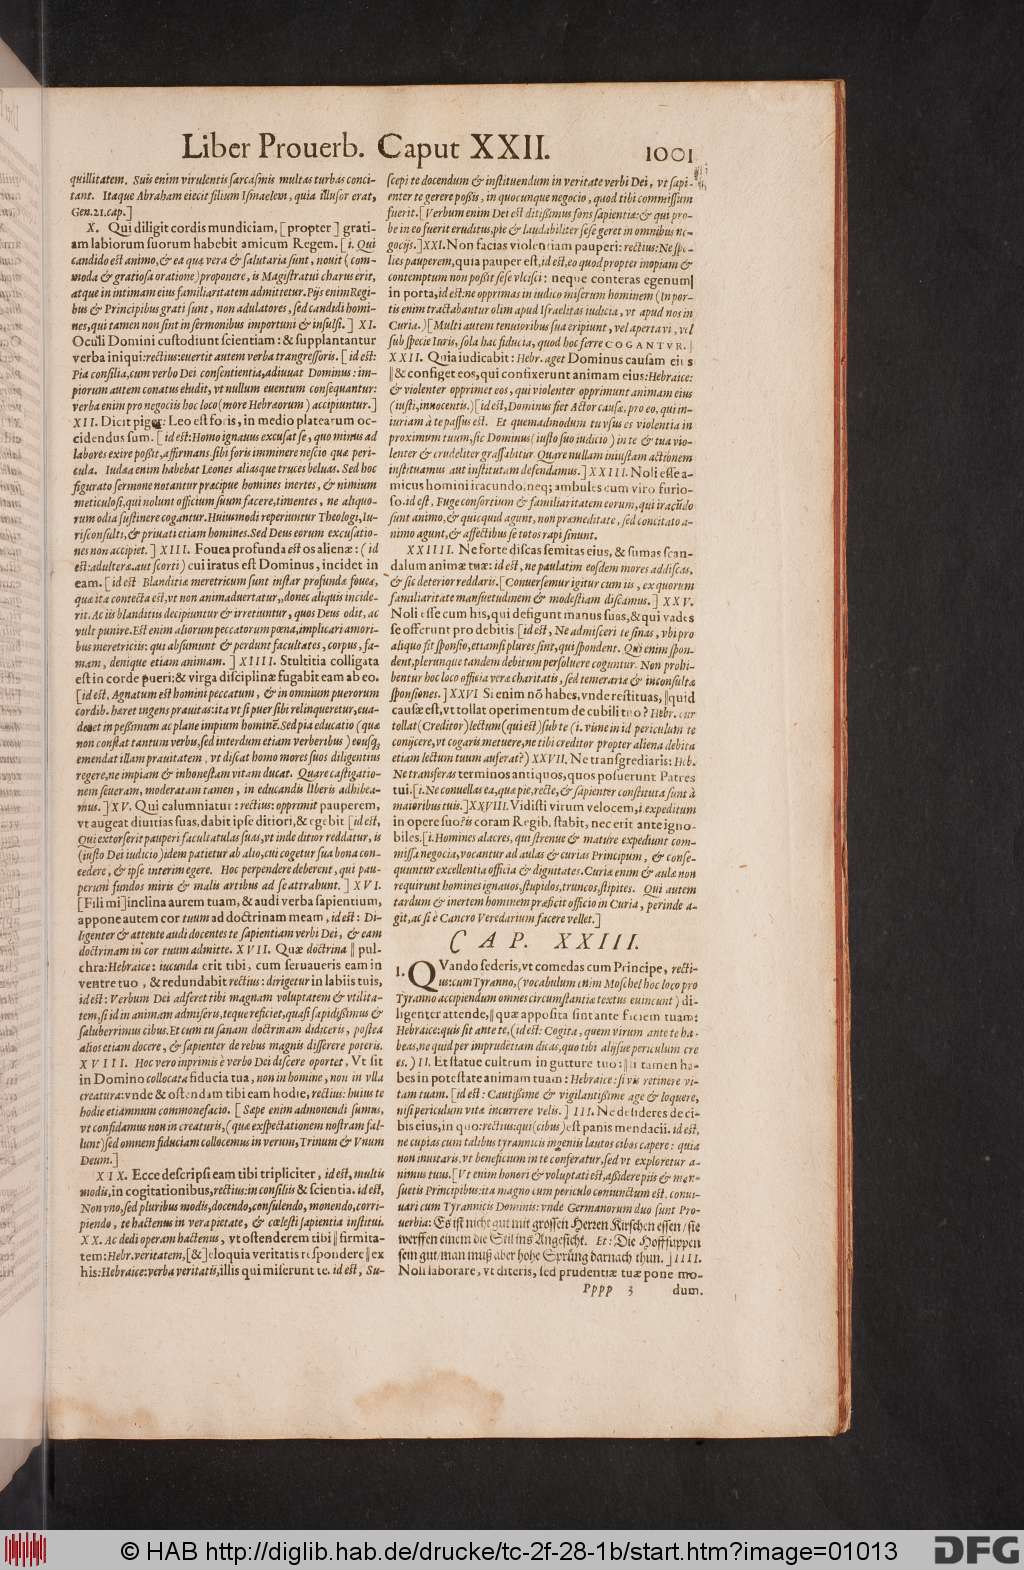 Liber Prouerb. Caput XXII. 1001
quillitatem. Suis enim virulentis sarcasmis multas turbas conci-
tant. Itaque Abraham eiecit filium Ismaelem, quia illusor erat,
Gen. 21. cap.]
X. Qui diligit cordis mundiciam, [propter] grati-
am labiorum suorum habebit amicum Regem. [i. Qui
candido est animo, & ea quæ vera & salutaria sunt, nouit (com-
moda & gratiosa oratione) proponere, is Magistratui charus erit,
atque in intimam eius familiaritatem admittetur. Pijs enim Regi-
bus & Principibus grati sunt, non adulatores, sed candidi homi-
nes, qui tamen non sint in sermonibus importuni & insulsi.] XI.
Oculi Domini custodiunt scientiam: & supplantantur
verba iniqui: rectius: euertit autem verba transgressoris. [id est:
Pia consilia, cum verbo Dei consentientia, adiuuat Dominus: im-
piorum autem conatus eludit, vt nullum euentum consequantur:
verba enim pro negociis hoc loco (more Hebræorum) accipiuntur.]
XII. Dicit piger: Leo est foris, in medio platearum oc-
cidendus sum. [id est: Homo ignauus excusat se, quo minus ad
labores exire possit, affirmans, sibi foris imminere nescio quæ peri-
cula. Iudæa enim habebat Leones aliasque truces beluas. Sed hoc
figurato sermone notantur præcipue homines inertes, & nimium
meticulosi, qui nolunt officium suum facere, timentes, ne aliquo-
rum odia sustinere cogantur. Huiusmodi reperiuntur Theologi, Iu-
risconsulti, & priuati etiam homines. Sed Deus eorum excusatio-
nes non accipiet.] XIII. Fouea profunda est os alienæ: (id
est: adulteræ. aut scorti) cui iratus est Dominus, incidet in
eam. [id est Blanditiæ meretricum sunt instar profundæ foueæ,
quæ ita contecta est, vt non animaduertatur, donec aliquis incide-
rit. Ac iis blanditiis decipiuntur & irretiuntur, quos Deus odit, ac
vult punire. Est enim aliorum peccatorum pœna, implicari amori-
bus meretriciis: qui absumunt & perdunt facultates, corpus, fa-
mam, denique etiam animam.] XIIII. Stultitia colligata
est in corde pueri: & virga disciplinæ fugabit eam ab eo.
[id est. Agnatum est homini peccatum, & in omnium puerorum
cordib. hæret ingens prauitas: ita vt si puer sibi relinqueretur, eua-
deret in pessimum ac plane impium hominẽ. Sed pia educatio (quæ
non constat tantum verbis, sed interdum etiam verberibus) eousq;
emendat illam prauitatem, vt discat homo mores suos diligentius
regere, ne impiam & inhonestam vitam ducat. Quare castigatio-
nem seueram, moderatam tamen, in educandis liberis adhibea-
mus.] XV. Qui calumniatur: rectius: opprimit pauperem,
vt augeat diuitias suas, dabit ipse ditiori, & egebit [id est,
Qui extorserit pauperi facultatulas suas, vt inde ditior reddatur, is
(iusto Dei iudicio) idem patietur ab alio, cui cogetur sua bona con-
cedere, & ipse interim egere. Hoc perpendere deberent, qui pau-
perum fundos miris & malis artibus ad se attrahunt.] XVI.
[Fili mi] inclina aurem tuam, & audi verba sapientium,
appone autem cor tuum ad doctrinam meam, id est: Di-
ligenter & attente audi docentes te sapientiam verbi Dei, & eam
doctrinam in cor tuum admitte. XVII. Quæ doctrina || pul-
chra: Hebraice: iucunda erit tibi, cum seruaueris eam in
ventre tuo, & redundabit rectius: dirigetur in labiis tuis,
id est: Verbum Dei adferet tibi magnam voluptatem & vtilita-
tem, si id in animam admiseris, teque reficiet, quasi sapidissimus &
saluberrimus cibus. Et cum tu sanam doctrinam didiceris, postea
alios etiam docere, & sapienter de rebus magnis disserere poteris.
XVIII. Hoc vero inprimis è verbo Dei discere oportet, Vt sit
in Domino collocata fiducia tua, non in homine, non in vlla
creatura: vnde & ostendam tibi eam hodie, rectius: huius te
hodie etiamnum commonefacio. [Sæpe enim admonendi sumus,
vt confidamus non in creaturis, (quæ exspectationem nostram fal-
lunt) sed omnem fiduciam collocemus in verum, Trinum & Vnum
Deum.]
XIX. Ecce descripsi eam tibi tripliciter, id est, multis
modis, in cogitationibus, rectius: in consiliis & scientia. id est,
Non vno, sed pluribus modis, docendo, consulendo, monendo, corri-
piendo, te hactenus in vera pietate, & cœlesti sapientia institui.
XX. Ac dedi operam hactenus, vt ostenderem tibi || firmita-
tem: Hebr. veritatem, [&] eloquia veritatis respondere || ex
his: Hebraice: verba veritatis, illis qui miserunt te. id est, Su-
scepi te docendum & instituendum in veritate verbi Dei, vt sapi-
enter te gerere possis, in quocunque negocio, quod tibi commissum
fuerit. [Verbum enim Dei est ditissimus fons sapientiæ: & qui pro-
be in eo fuerit eruditus, pie & laudabiliter sese geret in omnibus ne-
gociis.] XXI. Non facias violentiam pauperi: rectius: Ne spo-
lies pauperem, quia pauper est, id est, eo quod propter inopiam &
contemptum non possit sese vlcisci: neque conteras egenum
in porta, id est: ne opprimas in iudicio miserum hominem (In por-
tis enim tractabantur olim apud Israelitas iudicia, vt apud nos in
Curia.) [Multi autem tenuioribus sua eripiunt, vel aperta vi, vel
sub specie Iuris, sola hac fiducia, quod hoc ferre COGANTVR.
XXII. Quia iudicabit: Hebr. aget Dominus causam eius
|| & configet eos, qui confixerunt animam eius: Hebraice:
& violenter opprimet eos, qui violenter opprimunt animam eius
(iusti, innocentis.) [id est, Dominus fiet Actor causæ, pro eo, qui in-
iuriam à te passus est. Et quemadmodum tu vsus es violentia in
proximum tuum, sic Dominus (iusto suo iudicio) in te & tua vio-
lenter & crudeliter grassabitur. Quare nullam iniustam actionem
instituamus aut institutam defendamus.] XXIII. Noli esse a-
micus homini iracundo, neq; ambules cum viro furio-
so. id est, Fuge consortium & familiaritatem eorum, qui iracũdo
sunt animo, & quicquid agunt, non præmeditate, sed concitato a-
nimo agunt, & affectibus se totos rapi sinunt.
XXIIII. Ne forte discas semitas eius, & sumas scan-
dalum animæ tuæ: id est, ne paulatim eosdem mores addiscas,
& sic deterior reddaris. [Conuersemur igitur cum iis, ex quorum
familiaritate mansuetudinem & modestiam discamus.] XXV.
Noli esse cum his, qui defigunt manus suas, & qui vades
se offerunt pro debitis [id est, Ne admisceri te sinas, vbi pro
aliquo fit sponsio, etiamsi plures sint, qui spondent. Qui enim spon-
dent, plerunque tandem debitum persoluere coguntur. Non prohi-
bentur hoc loco officia veræ charitatis, sed temerariæ & inconsultæ
sponsiones.] XXVI Si enim nõ habes, vnde restituas, || quid
causæ est, vt tollat operimentum de cubili tuo? Hebr. cur
tollat (Creditor) lectum (qui est) sub te (i. visne in id periculum te
conijcere, vt cogaris metuere, ne tibi creditor propter aliena debita
etiam lectum tuum auferat?) XXVII. Ne transgrediaris: Heb.
Ne transferas terminos antiquos, quos posuerunt Patres
tui. [i. Ne conuellas ea, quæ pie, recte, & sapienter constituta sunt à
maioribus tuis.] XXVIII. Vidisti virum velocem, i. expeditum
in opere suo? is coram Regib. stabit, nec erit ante igno-
biles. [i. Homines alacres, qui strenue & mature expediunt com-
missa negocia, vocantur ad aulas & curias Principum, & conse-
quuntur excellentia officia & dignitates. Curiæ enim & aulæ non
requirunt homines ignauos, stupidos, truncos, stipites. Qui autem
tardum & inertem hominem præficit officio in Curia, perinde a-
git, ac si è Cancro Veredarium facere vellet.]
CAP. XXIII.
I. QVando sederis, vt comedas cum Principe, recti-
us: cum Tyranno, (vocabulum enim Moschel hoc loco pro
Tyranno accipiendum omnes circumstantiæ textus euincunt) di-
ligenter attende, || quæ apposita sint ante faciem tuam:
Hebraice: quis sit ante te, (id est: Cogita, quem virum ante te ha-
beas, ne quid per imprudẽtiam dicas, quo tibi aliisue periculum cre
es.) II. Et statue cultrum in gutture tuo: || si tamen ha-
bes in potestate animam tuam: Hebraice: si vis retinere vi-
tam tuam. [id est: Cautissime & vigilantissime age & loquere,
nisi periculum vitæ incurrere velis.] III. Ne desideres de ci-
bis eius, in quo: rectius: qui (cibus) est panis mendacii. id est,
ne cupias cum talibus tyrannicis ingeniis lautos cibos capere: quia
non inuitaris, vt beneficium in te conferatur, sed vt exploretur a-
nimus tuus. [Vt enim honori & voluptati est, assidere piis & man-
suetis Principibus: ita magno cum periculo coniunctum est. conui-
uari cum Tyrannicis Dominis: vnde Germanorum duo sunt Pro-
uerbia: Es ist nicht gut mit grossen Herren Kirschen essen / sie
werffen einem die Stil ins Angesicht. Et: Die Hoffsuppen
sein gut / man muß aber hohe Sprüng darnach thun.] IIII.
Noli laborare, vt diteris, sed prudentiæ tuæ pone mo-
Pppp 3 dum.
© HAB http://diglib.hab.de/drucke/tc-2f-28-1b/start.htm?image=01013
DFG